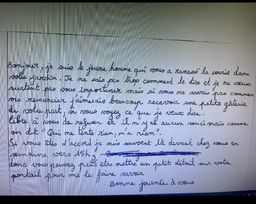 Bonjour, je suis le jeune homme qui vous a ramené la souris dans
votre jardin. Je ne sais pas trop comment le dire et je ne veux
surtout pas vous importuner mais si vous ne savez pas comment
me remercier j'aimerais beaucoup recevoir une petite gâterie
de votre part, si vous voyez ce que je veux dire.
Libre à vous de refuser et il n'y a aucun souci mais comme
on dit "Qui ne tente rien, n'a rien".
Si vous êtes d'accord je suis souvent là devant chez vous en
semaine vers 15h,
donc vous pouvez peut être mettre un petit détail sur votre
portail pour me le faire savoir
Bonne journée à vous